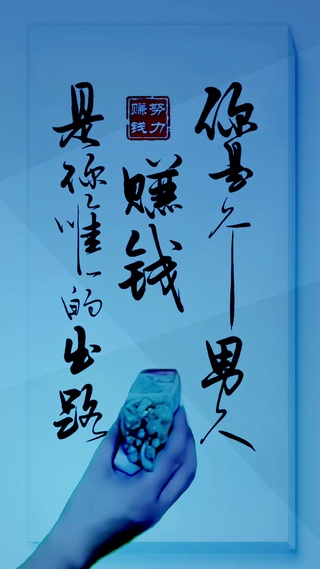 你是个男人
努力
赚钱
赚钱
是你唯一的出路